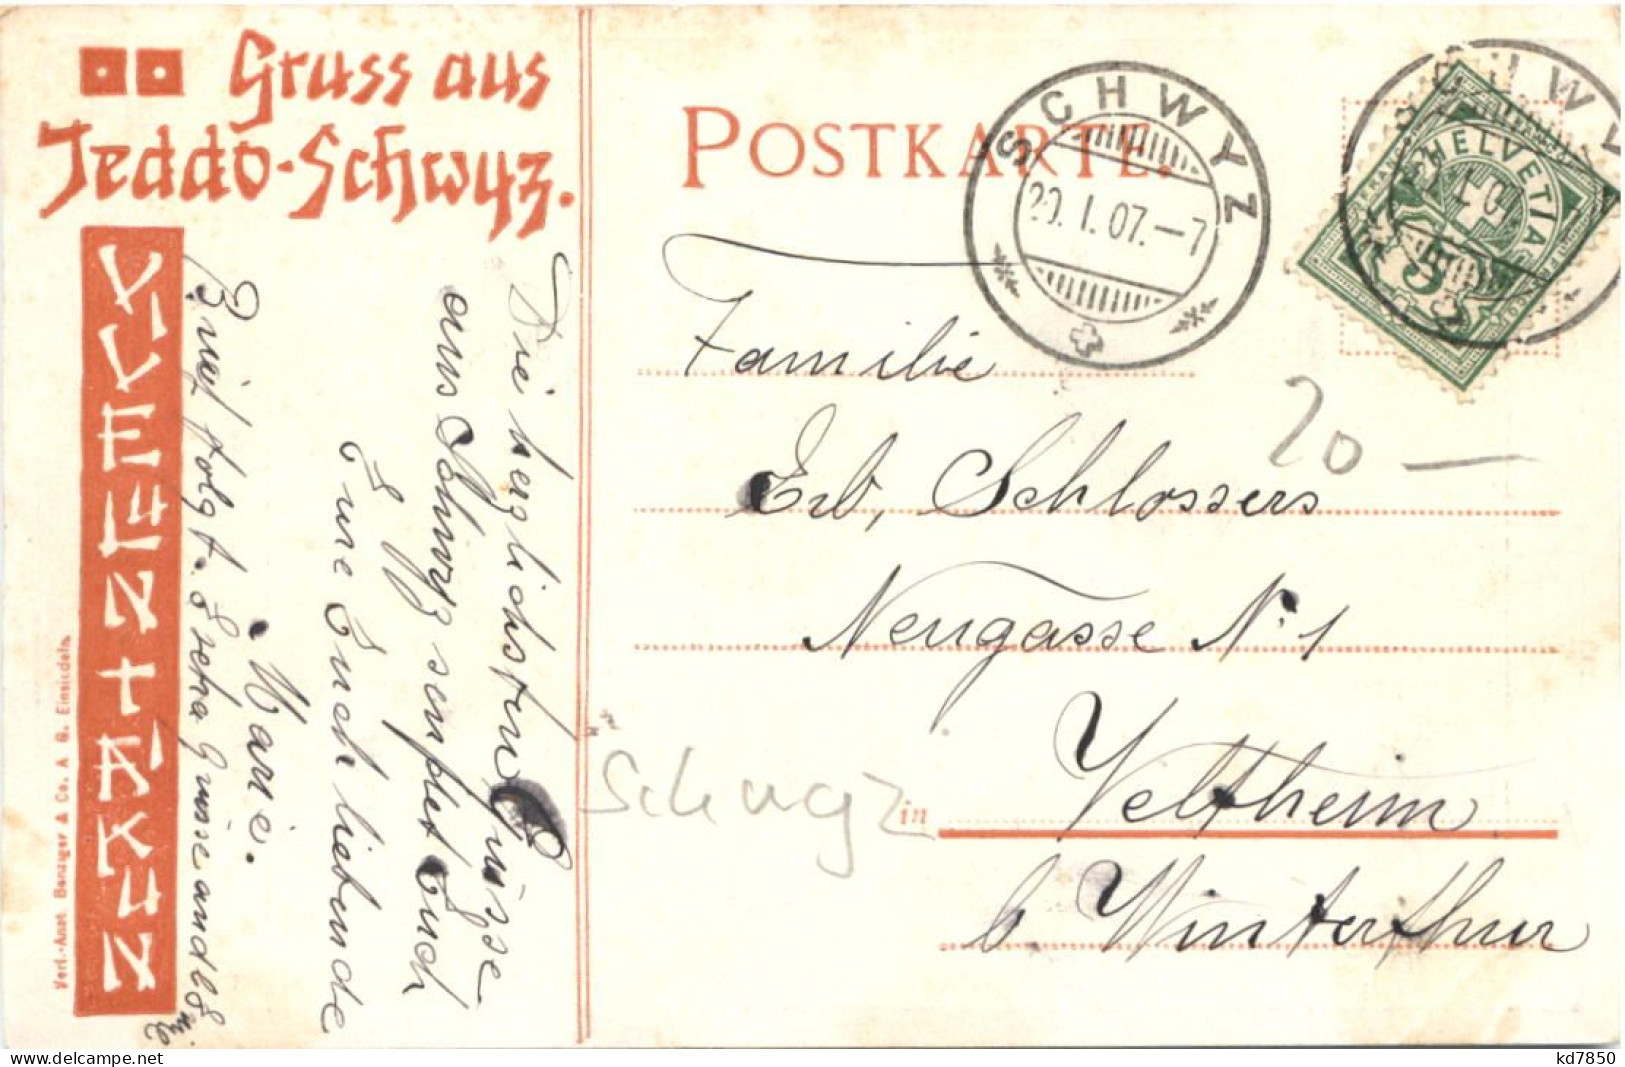 Gruss aus
Jeddo-Schwyz.
VIVELUNTAKUN
Verl.-Anst. Benziger & Co. A. G. Einsiedeln.
Die herzlichsten Grüsse
aus Schwyz sendet Euch
Eure Euch liebende
Marie.
Brief folgt. Extra Grüsse an
POSTKARTE.
SCHWYZ
20. I. 07.–7
HELVETIA
FRANCO
5
Familie
Erb, Schlossers
Neugasse No 1
in Veltheim
b. Winterthur
20 —
Schwyz
kd7850
delcampe.net